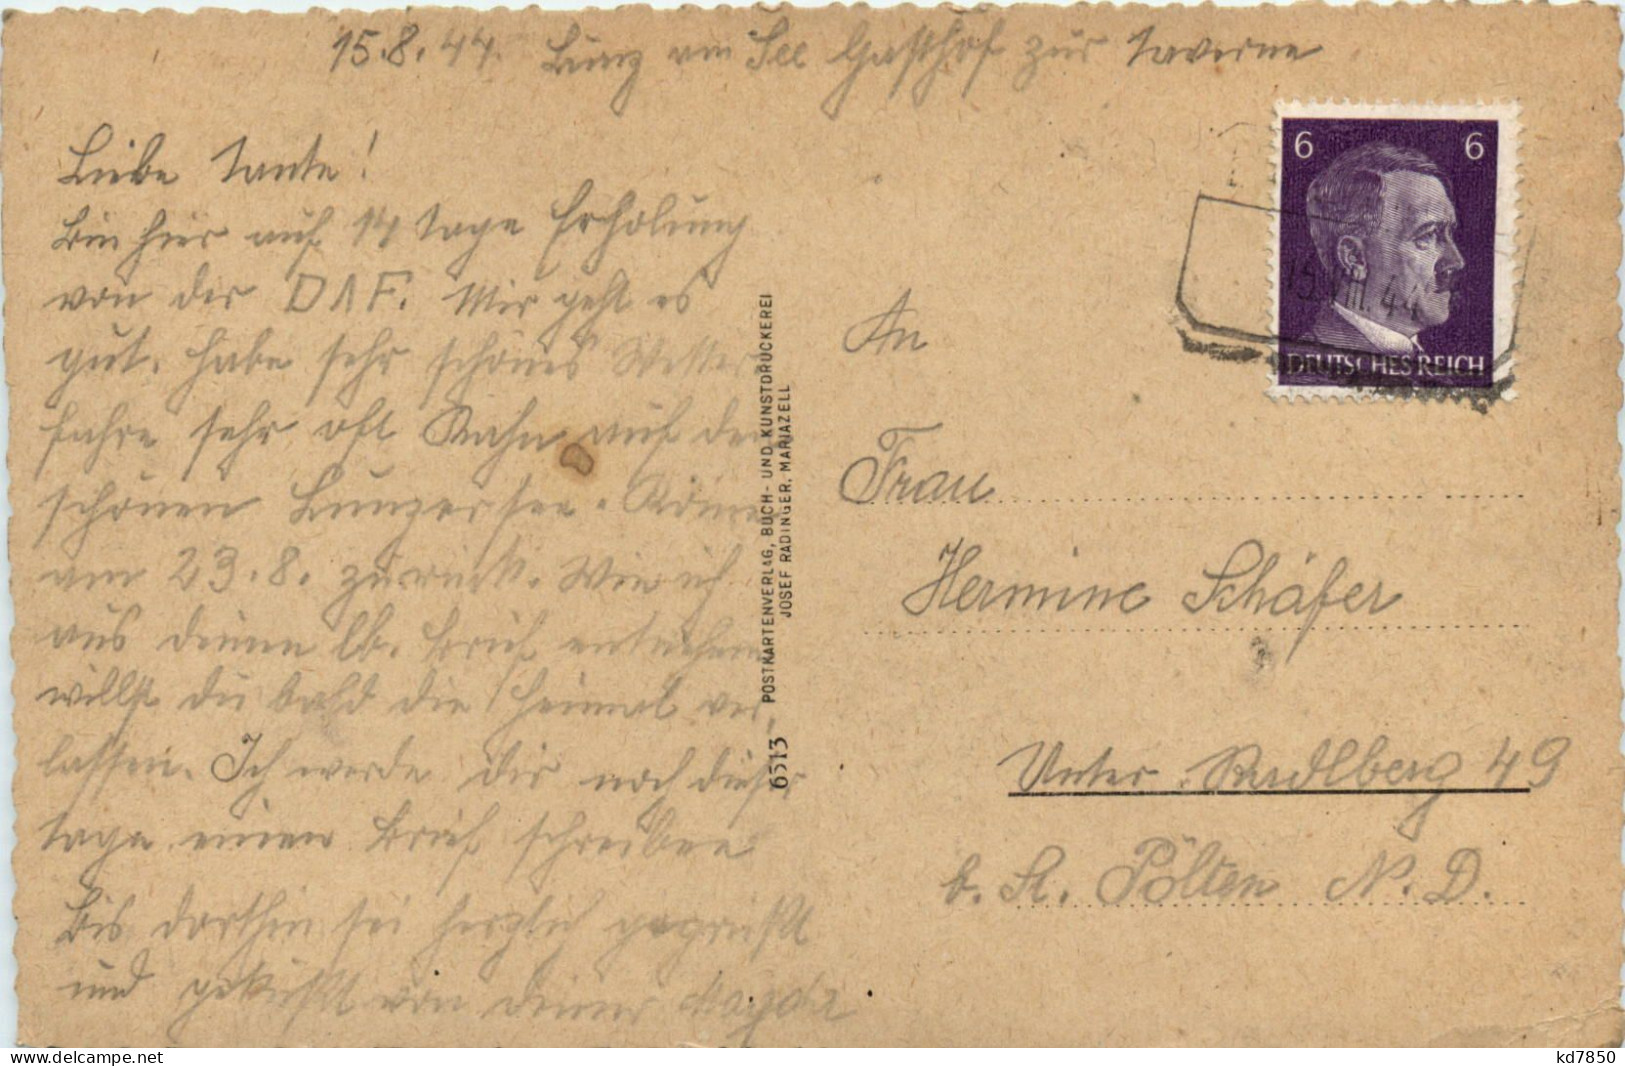 15.8.44. Lunz am See Gasthof zur Taverne
Liebe Tante!
Bin hier auf 14 tage Erholung
von der DAF. Mir geht es
gut. Habe sehr schönes Wetter
fahre sehr oft Kahn auf den
schönen Lunzersee. Komme
am 23.8. zurück. Wie ich
aus deinem lb. Brief entnehme
willst du bald die Heimat ver
lassen. Ich werde dir noch dieser
tage einen Brief schreiben
Bis dorthin sei herzlich gegrüßt
und geküßt von deiner
6513 POSTKARTENVERLAG, BUCH- UND KUNSTDRUCKEREI
JOSEF RADINGER, MARIAZELL
6 6
15.VIII.44
DEUTSCHES REICH
An
Frau
Hermine Schäfer
Unter Radlberg 49
b. St. Pölten N. D.
www.delcampe.net
kd7850